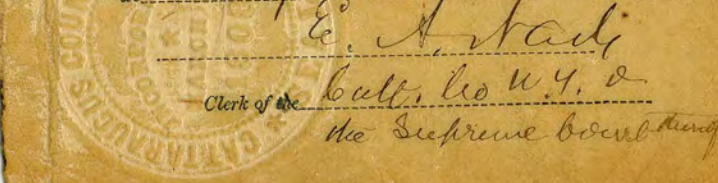 E. A. Nash
Clerk of the Catt. Co N.Y. &
the Supreme Court thereof
CATTARAUGUS COUN